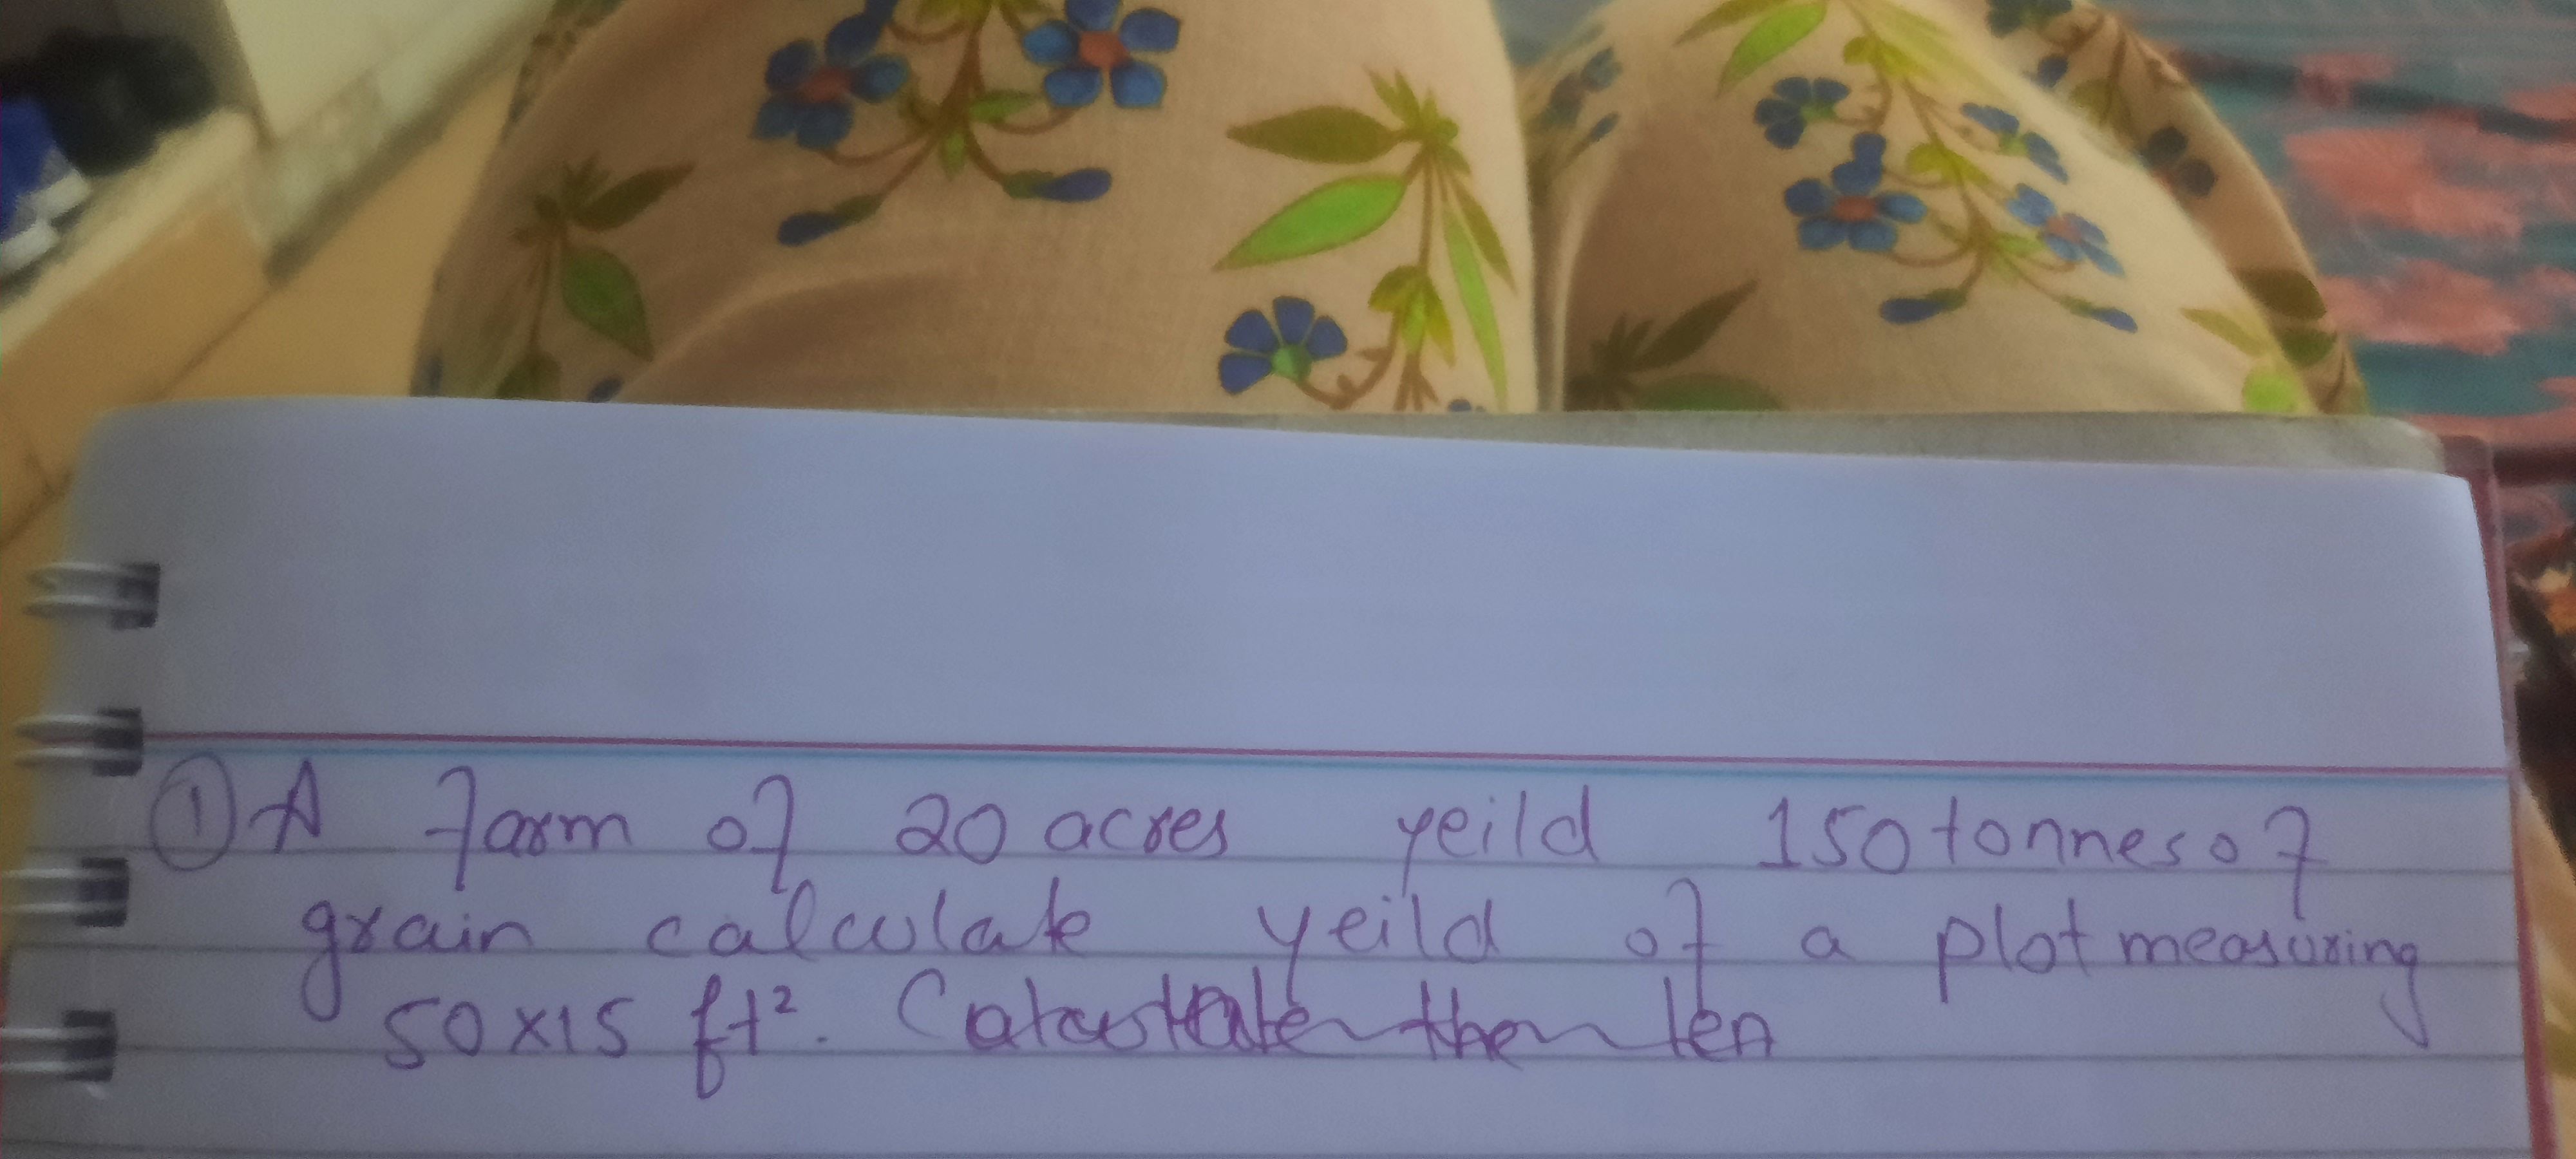 ① A farm of 20 acres yeild 150 tonnes of
grain calculate yeild of a plot measuring
50x15 ft². Calculate then len